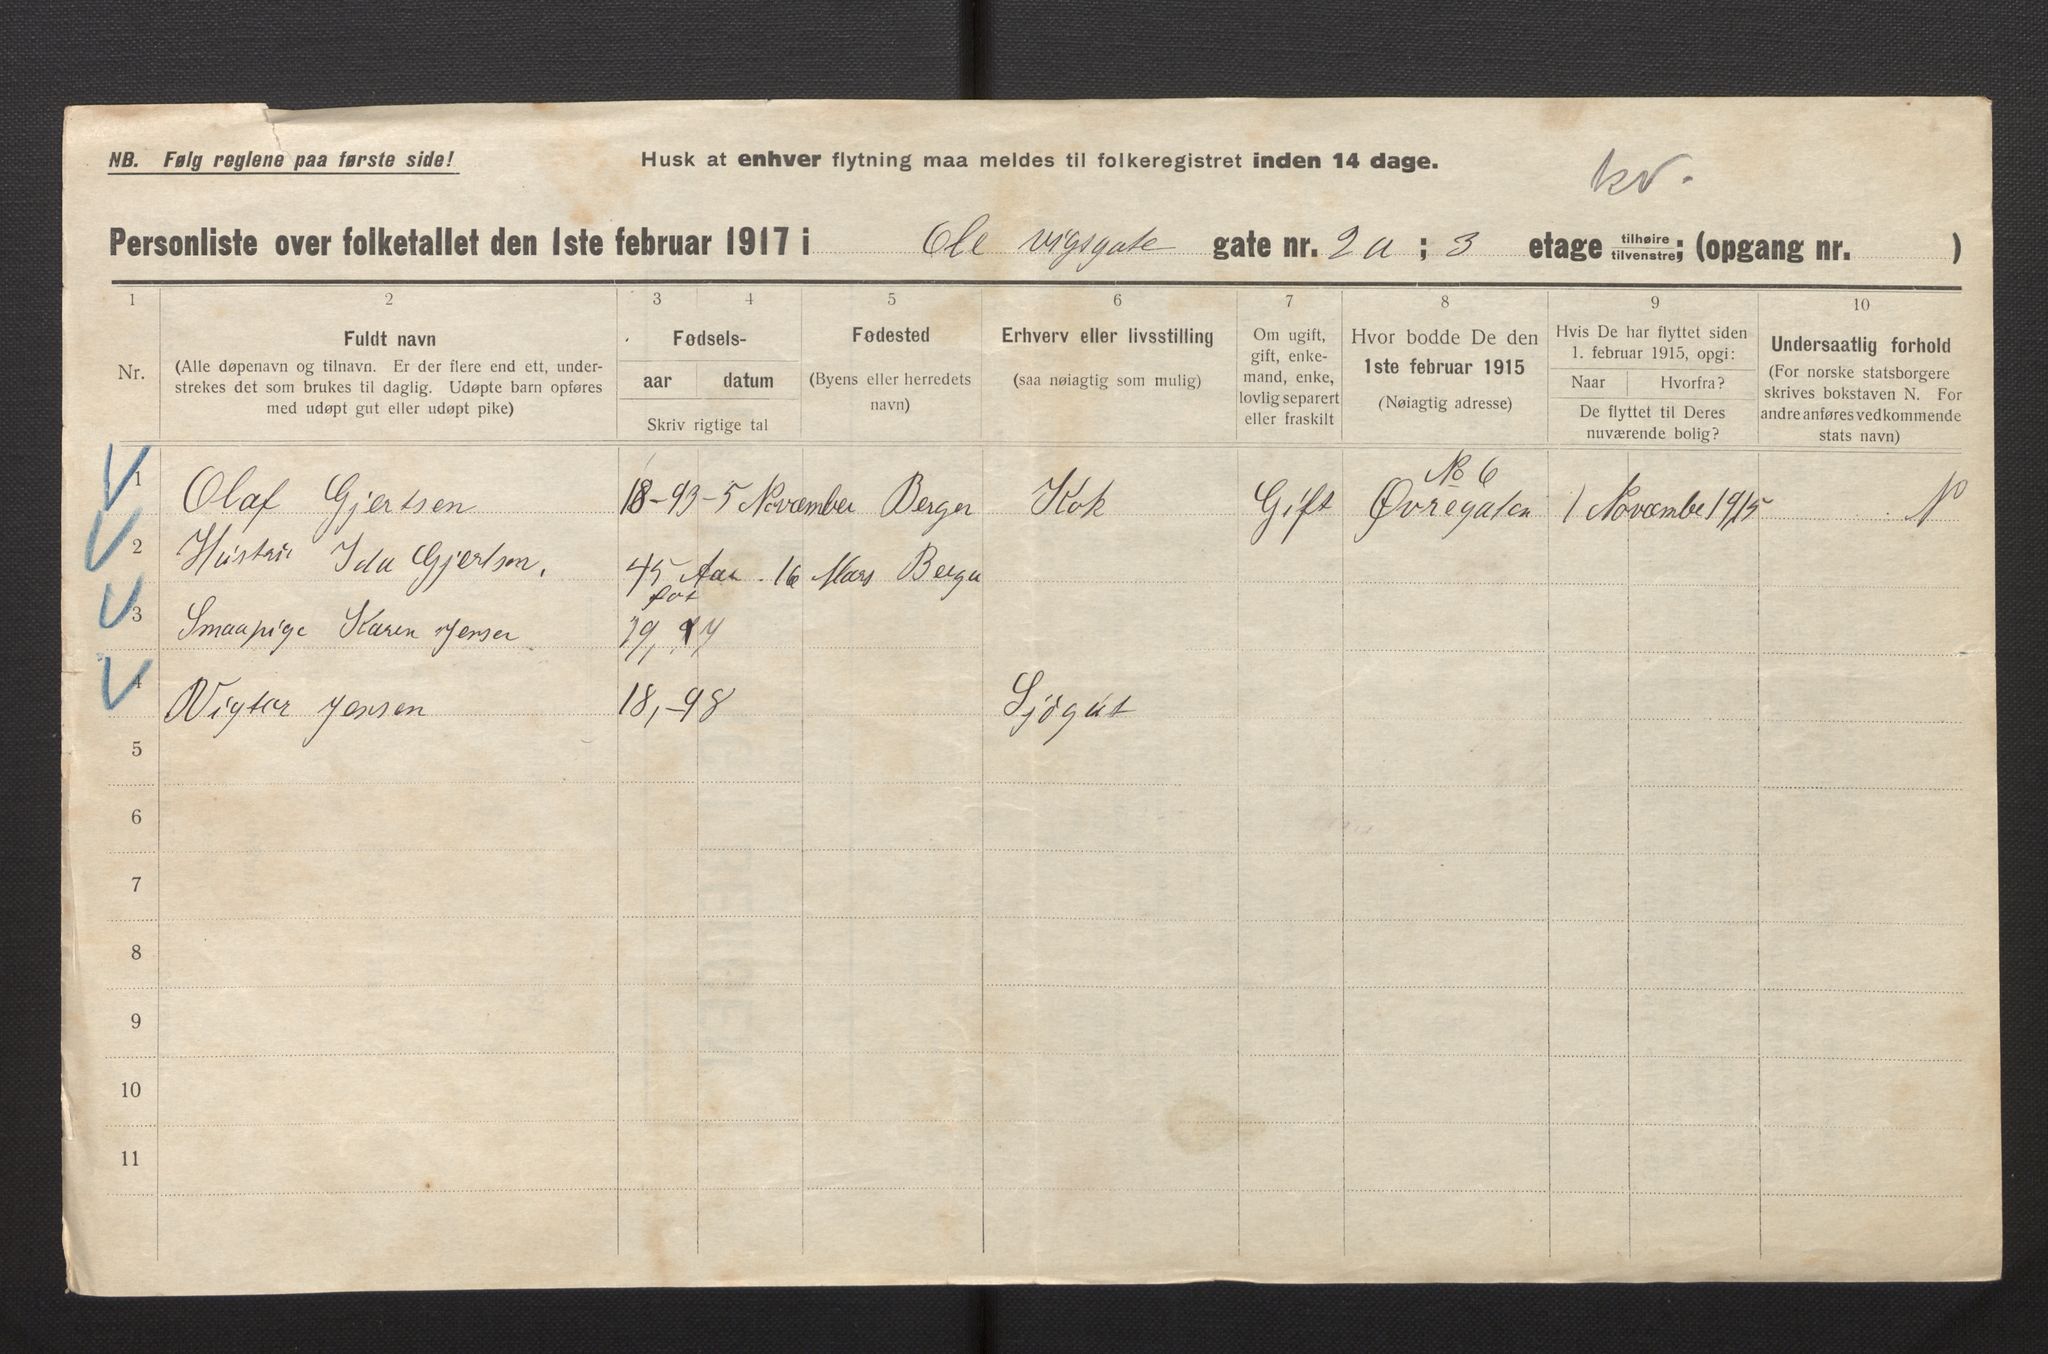 NB. Følg reglene paa første side!
Husk at enhver flytning maa meldes til folkeregistret inden 14 dage.
kv.
Personliste over folketallet den 1ste februar 1917 i Ole Vigsgate gate nr. 2a ; 3 etage tilhøire tilvenstre; (opgang nr. )
1 2 3 4 5 6 7 8 9 10
Nr.
Fuldt navn
(Alle døpenavn og tilnavn. Er der flere end ett, under-
strekes det som brukes til daglig. Udøpte barn opføres
med udøpt gut eller udøpt pike)
Fødsels-
aar datum
Skriv rigtige tal
Fødested
(Byens eller herredets
navn)
Erhverv eller livsstilling
(saa nøiagtig som mulig)
Om ugift,
gift, enke-
mand, enke,
lovlig separert
eller fraskilt
Hvor bodde De den
1ste februar 1915
(Nøiagtig adresse)
Hvis De har flyttet siden
1. februar 1915, opgi:
Naar Hvorfra?
De flyttet til Deres
nuværende bolig?
Undersaatlig forhold
(For norske statsborgere
skrives bokstaven N. For
andre anføres vedkommende
stats navn)
No 6
1 Olaf Gjertsen 18-93-5 November Bergen Kok Gift Øvregaten 1 November 1915 N
2 Hustru Ida Gjertsen. 45 Aar. 16 Mars Bergen
3 Smaapige Karen Jensen 19,
4 Vigtor Jensen 18,-98 Sjögut
5
6
7
8
9
10
11